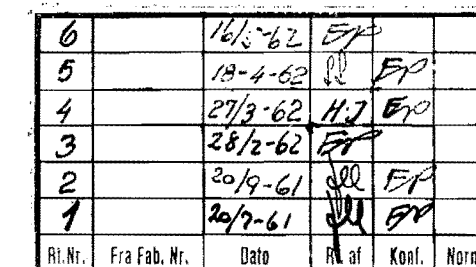 6 16/5-62 EP
5 18-4-62 EP
4 27/3-62 H.J EP
3 28/2-62 EP
2 20/9-61 EP
1 20/7-61 EP
Rt.Nr. Fra Fab. Nr. Dato af Konf. Norm